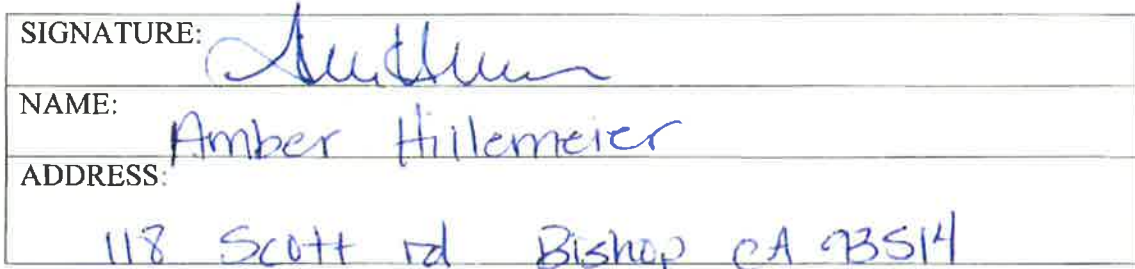 SIGNATURE:
NAME:
Amber Hillemeier
ADDRESS:
118 Scott rd Bishop CA 93514